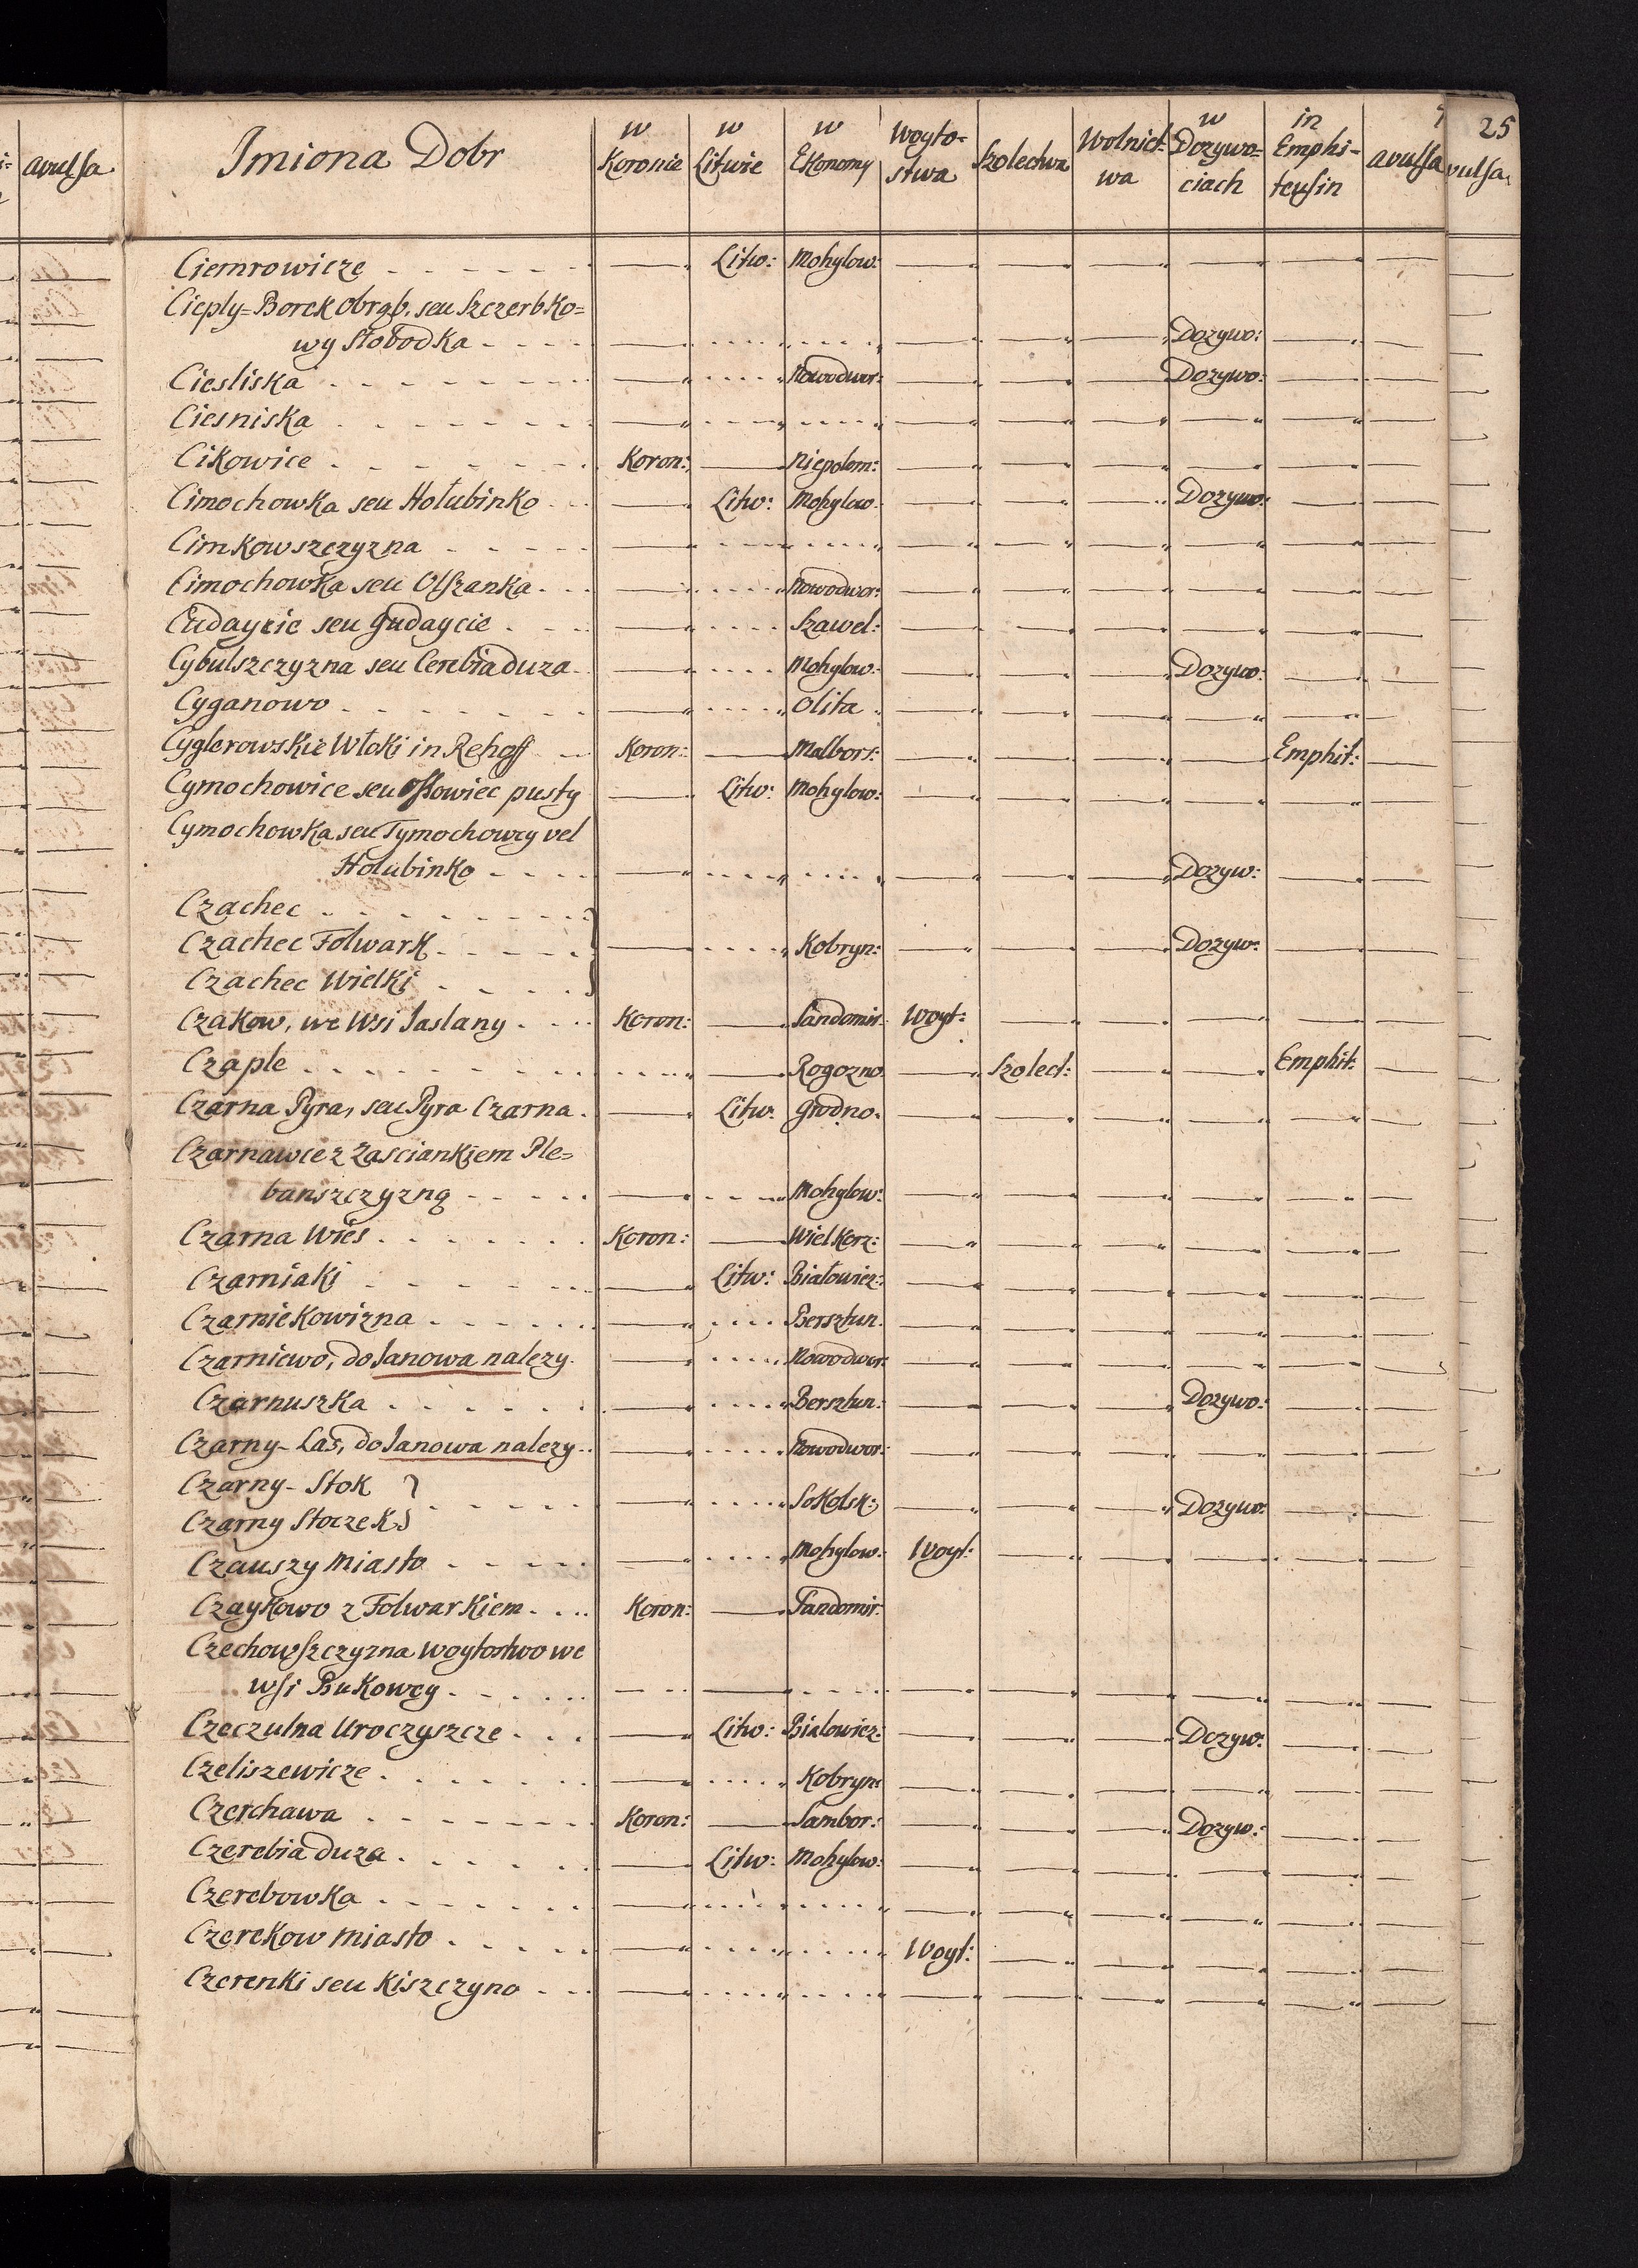 25
avulsa
vulsa
Imiona Dobr | w Koronie | w Litwie | w Ekonomy | Woyto=stwa | Szolectwa | Wolnict:wa | w Dozywo=ciach | in Emphi=teusin | avulsa
Ciemrowicze - - - - - - | — | Litw: | Mohylow: | — | — | — | — | — | —
Cieply=Borek Obrąb. seu Szczerbko=
wy Słobodka - - - - | — | . . . . | . . . . | — | — | — | Dozywo: | — | —
Ciesliska - - - - - - - | — | . . . . | Nowodwor: | — | — | — | Dozywo: | — | —
Ciesniska - - - - - - - | — | . . . . | . . . . | — | — | — | — | — | —
Cikowice - - - - - - - | Koron: | — | Niepolom: | — | — | — | — | — | —
Cimochowka seu Hołubinko - - | — | Litw: | Mohylow. | — | — | — | Dozywo: | — | —
Cimkowszczyzna - - - - | — | . . . . | . . . . | — | — | — | — | — | —
Cimochowka seu Olszanka - - - | — | . . . . | Nowodwor: | — | — | — | — | — | —
Cudaycie seu Gudaycie - - - | — | . . . . | Szawel: | — | — | — | — | — | —
Cybulszczyzna seu Cerebia duza - | — | . . . . | Mohylow: | — | — | — | Dozywo: | — | —
Cyganowo - - - - - - - | — | . . . . | Olita | — | — | — | — | — | —
Cyglerowskie Włoki in Rehoff - | Koron: | — | Malbors: | — | — | — | — | Emphit: | —
Cymochowice seu Ossowiec pusty | — | Litw: | Mohylow: | — | — | — | — | — | —
Cymochowka seu Tymochowcy vel
Hołubinko - - - - | — | . . . . | . . . . | — | — | — | Dozyw: | — | —
Czachec - - - - - - - }
Czachec Folwark - - - - } | — | . . . . | Kobryn: | — | — | — | Dozyw: | — | —
Czachec Wielki - - - - }
Czakow, we Wsi Jaslany - - - | Koron: | — | Sandomir: | Woyt: | — | — | — | — | —
Czaple - - - - - - - | . . . . | — | Rogozno | — | Szolect: | — | — | Emphit: | —
Czarna Pyra, seu Pyra Czarna . | — | Litw: | Grodno. | — | — | — | — | — | —
Czarnawce z Zasciankiem Ple=
banszczyzną - - - - | — | . . . . | Mohylow: | — | — | — | — | — | —
Czarna Wies - - - - - - | Koron: | — | Wielkorz: | — | — | — | — | — | —
Czarniaki - - - - - - | — | Litw: | Białowiez: | — | — | — | — | — | —
Czarniekowizna - - - - - | — | . . . . | Bersztun. | — | — | — | — | — | —
Czarniewo, do Janowa nalezy - | — | . . . . | Nowodwor: | — | — | — | — | — | —
Czarnuszka - - - - - - | — | . . . . | Bersztun: | — | — | — | Dozywo: | — | —
Czarny-Las, do Janowa nalezy - | — | . . . . | Nowodwor: | — | — | — | — | — | —
Czarny-Stok }
Czarny Stoczek } - - - - | — | . . . . | Sokolsk: | — | — | — | Dozywo: | — | —
Czauszy Miasto - - - - | — | . . . . | Mohylow: | Woyt: | — | — | — | — | —
Czaykowo z Folwarkiem - - - | Koron: | — | Sandomir:
Czechowszczyzna Woytostwo we
wsi Bukowcy - - - - - | — | — | . . . . | — | — | — | — | — | —
Czeczulna Uroczyszcze - - - | — | Litw: | Bialowiez: | — | — | — | Dozyw: | — | —
Czeliszewicze - - - - - - | — | . . . . | Kobryn: | — | — | — | — | — | —
Czerchawa - - - - - - | Koron: | — | Sambor: | — | — | — | Dozyw: | — | —
Czerebia duza - - - - - | — | Litw: | Mohylow: | — | — | — | — | — | —
Czerebowka - - - - - - | — | . . . . | . . . . | — | — | — | — | — | —
Czerekow Miasto - - - - | — | . . . . | . . . . | Woyt: | — | — | — | — | —
Czerenki seu Kiszczyno - - - | — | . . . . | . . . . | — | — | — | — | — | —